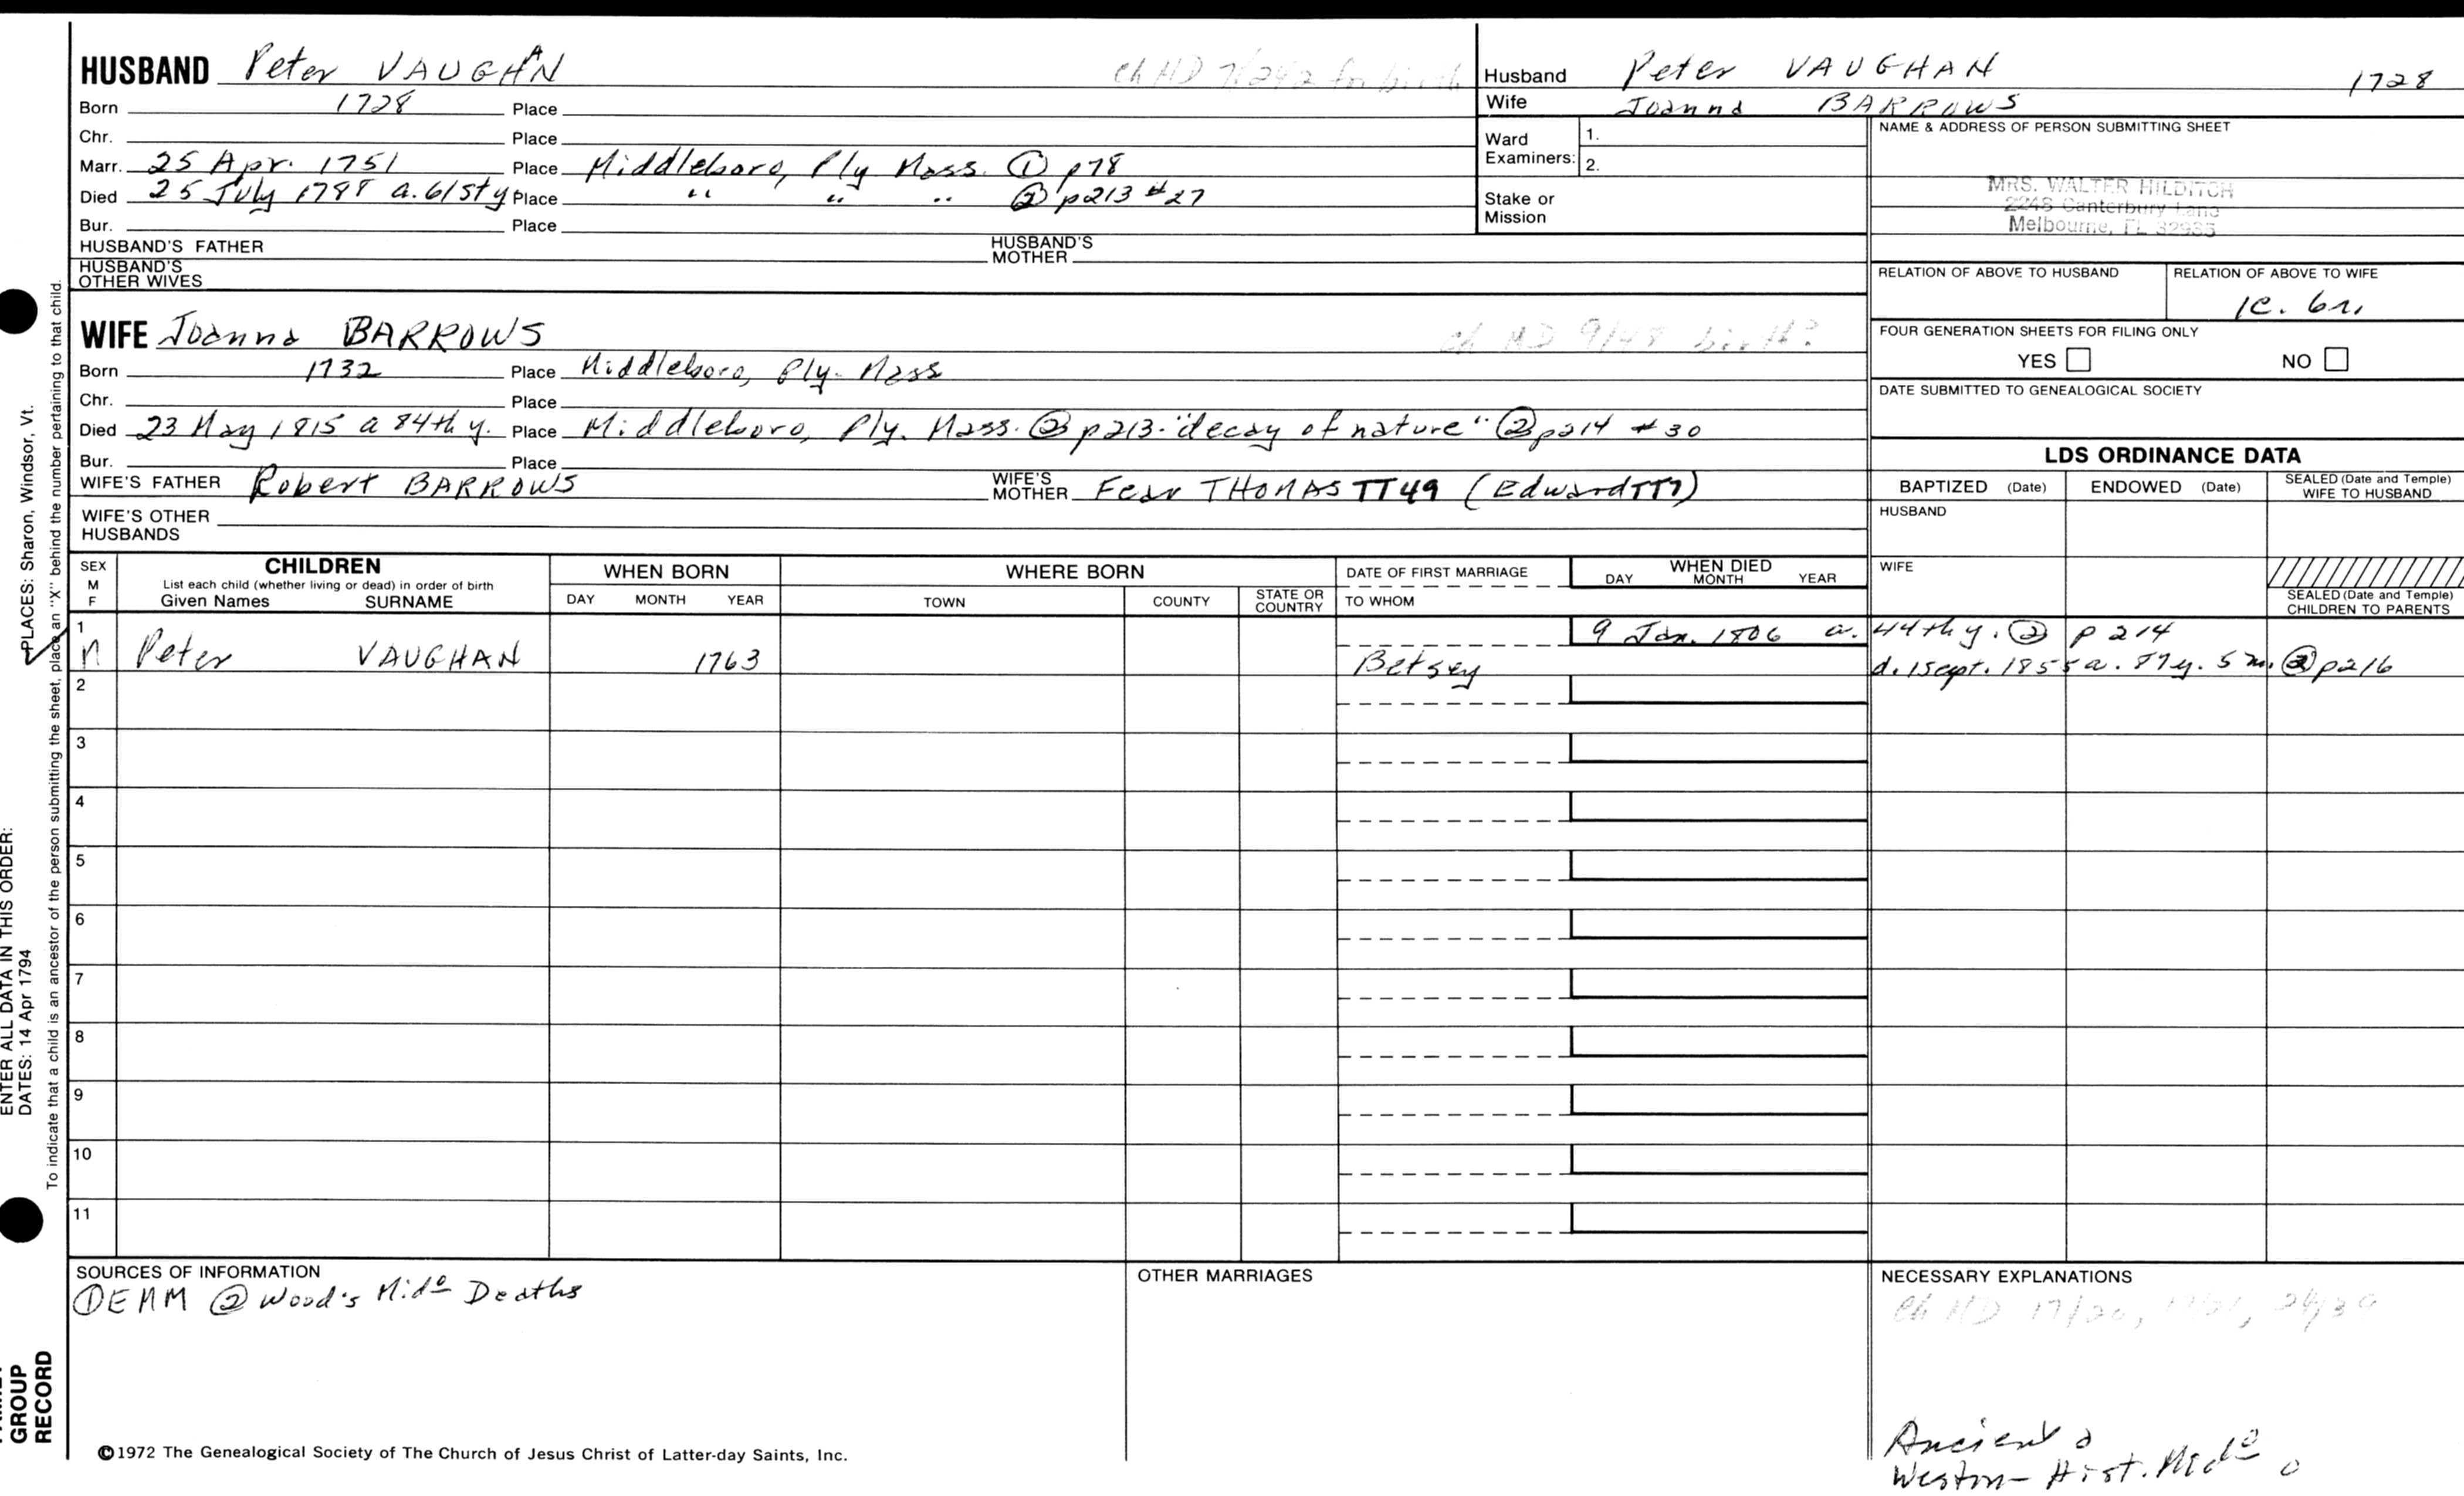 HUSBAND Peter VAUGHAN Ch MD 7/242 for birth
Born 1728 Place
Chr. Place
Marr. 25 Apr. 1751 Place Middleboro, Ply Mass. ① p78
Died 25 July 1788 a. 61st y Place " " " ② p213 #27
Bur. Place
HUSBAND'S FATHER HUSBAND'S MOTHER
HUSBAND'S OTHER WIVES
Husband Peter VAUGHAN 1728
Wife Joanna BARROWS
Ward Examiners: 1.
2.
Stake or Mission
NAME & ADDRESS OF PERSON SUBMITTING SHEET
MRS. WALTER HILDITCH
2248 Canterbury Lane
Melbourne, FL 32935
RELATION OF ABOVE TO HUSBAND RELATION OF ABOVE TO WIFE
1c. 6r.
FOUR GENERATION SHEETS FOR FILING ONLY
YES NO
DATE SUBMITTED TO GENEALOGICAL SOCIETY
WIFE Joanna BARROWS Ch MD 9/48 birth?
Born 1732 Place Middleboro, Ply. Mass
Chr. Place
Died 23 May 1815 a 84th y. Place Middleboro, Ply. Mass. ② p213. "decay of nature" ② p214 #30
Bur. Place
WIFE'S FATHER Robert BARROWS WIFE'S MOTHER Fear THOMAS TT49 (Edward TT7)
WIFE'S OTHER HUSBANDS
LDS ORDINANCE DATA
BAPTIZED (Date) ENDOWED (Date) SEALED (Date and Temple) WIFE TO HUSBAND
HUSBAND
WIFE
SEALED (Date and Temple) CHILDREN TO PARENTS
SEX M F CHILDREN List each child (whether living or dead) in order of birth Given Names SURNAME
WHEN BORN DAY MONTH YEAR
WHERE BORN TOWN COUNTY STATE OR COUNTRY
DATE OF FIRST MARRIAGE TO WHOM
WHEN DIED DAY MONTH YEAR
1 9 Jan. 1806 a. 44th y. ② p 214
M Peter VAUGHAN 1763 Betsey d. 1 Sept. 1855 a. 87y. 5 m. ② p216
2
3
4
5
6
7
8
9
10
11
SOURCES OF INFORMATION
① EMM ② Wood's Mido Deaths
OTHER MARRIAGES
NECESSARY EXPLANATIONS
Ch MD 17/20, 24/39
Ancient
Weston - Hist. Mido
©1972 The Genealogical Society of The Church of Jesus Christ of Latter-day Saints, Inc.
ENTER ALL DATA IN THIS ORDER:
DATES: 14 Apr 1794 PLACES: Sharon, Windsor, Vt.
To indicate that a child is an ancestor of the person submitting the sheet, place an "X" behind the number pertaining to that child.
GROUP
RECORD